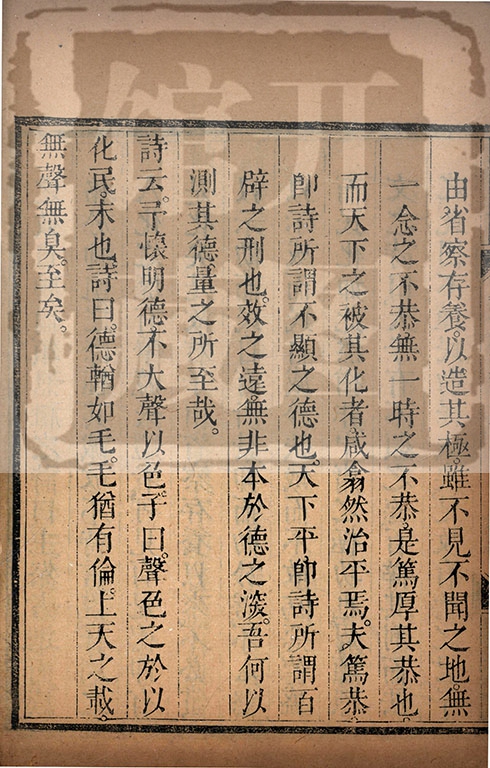 由省察存養。以造其極。雖不見不聞之地。無
一念之不恭。無一時之不恭。是篤厚其恭也。
而天下之被其化者。咸翕然治平焉。夫篤恭。
卽詩所謂不顯之德也。天下平。卽詩所謂百
辟之刑也。效之遠。無非本於德之深。吾何以
測其德量之所至哉。
詩云。予懷明德。不大聲以色。子曰。聲色之於以
化民。末也。詩曰。德輶如毛。毛猶有倫。上天之載。
無聲無臭。至矣。